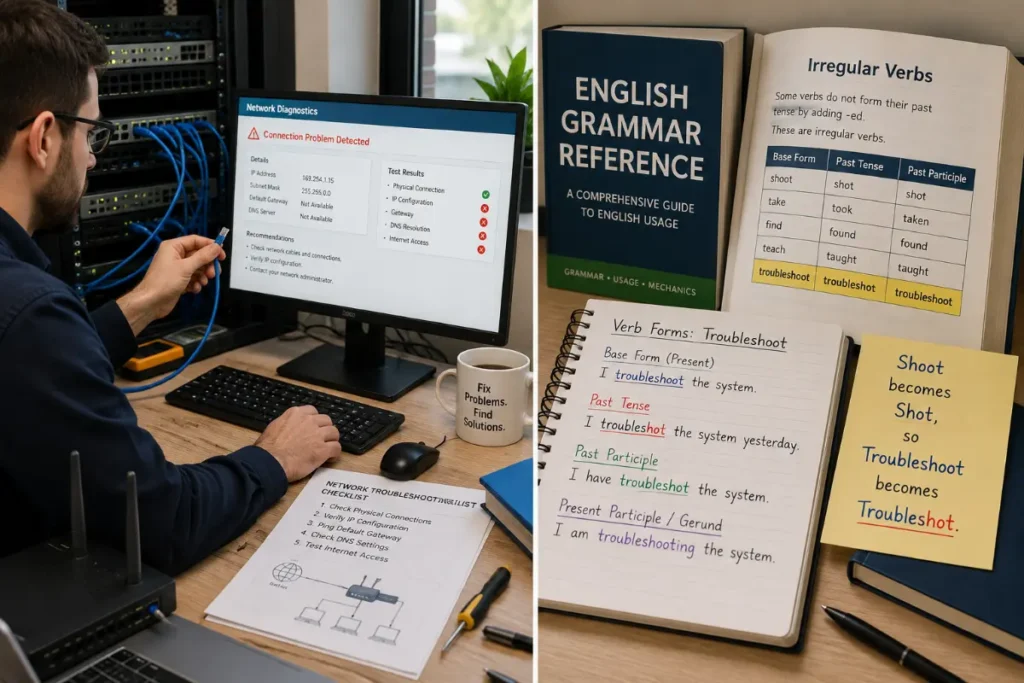 Network Diagnostics
Connection Problem Detected
Details
IP Address
Subnet Mask
Default Gateway Not Available
DNS Server Not Available
Test Results
• Physical Connection
• IP Configuration
• Gateway
• DNS Resolution
• Internet Access
Recommendations
• Check network cables and connections.
• Verify IP configuration.
• Contact your network administrator.
Fix
Problems.
Find
Solutions.
NETWORK
CHECKLIST
1. Check Physical Connections
2. Verify IP Configuration
3. Ping Default Gateway
4. Check DNS Settings
5. Test Internet Access
ENGLISH
GRAMMAR
REFERENCE
A COMPREHENSIVE GUIDE
TO ENGLISH USAGE
GRAMMAR • USAGE • MECHANICS
Irregular Verbs
Some verbs do not form their past
tense by adding -ed.
These are irregular verbs.
Base Form Past Tense Past Participle
shoot shot shot
take took taken
find found found
teach taught taught
troubleshoot troubleshot troubleshoot
Verb Forms: Troubleshoot
Base Form (Present)
I troubleshoot the system.
Past Tense
I troubleshot the system yesterday.
Past Participle
I have troubleshot the system.
Present Participle / Gerund
I am troubleshooting the system.
Shoot
becomes
Shot,
so
Troubleshoot
becomes
Troubleshot.